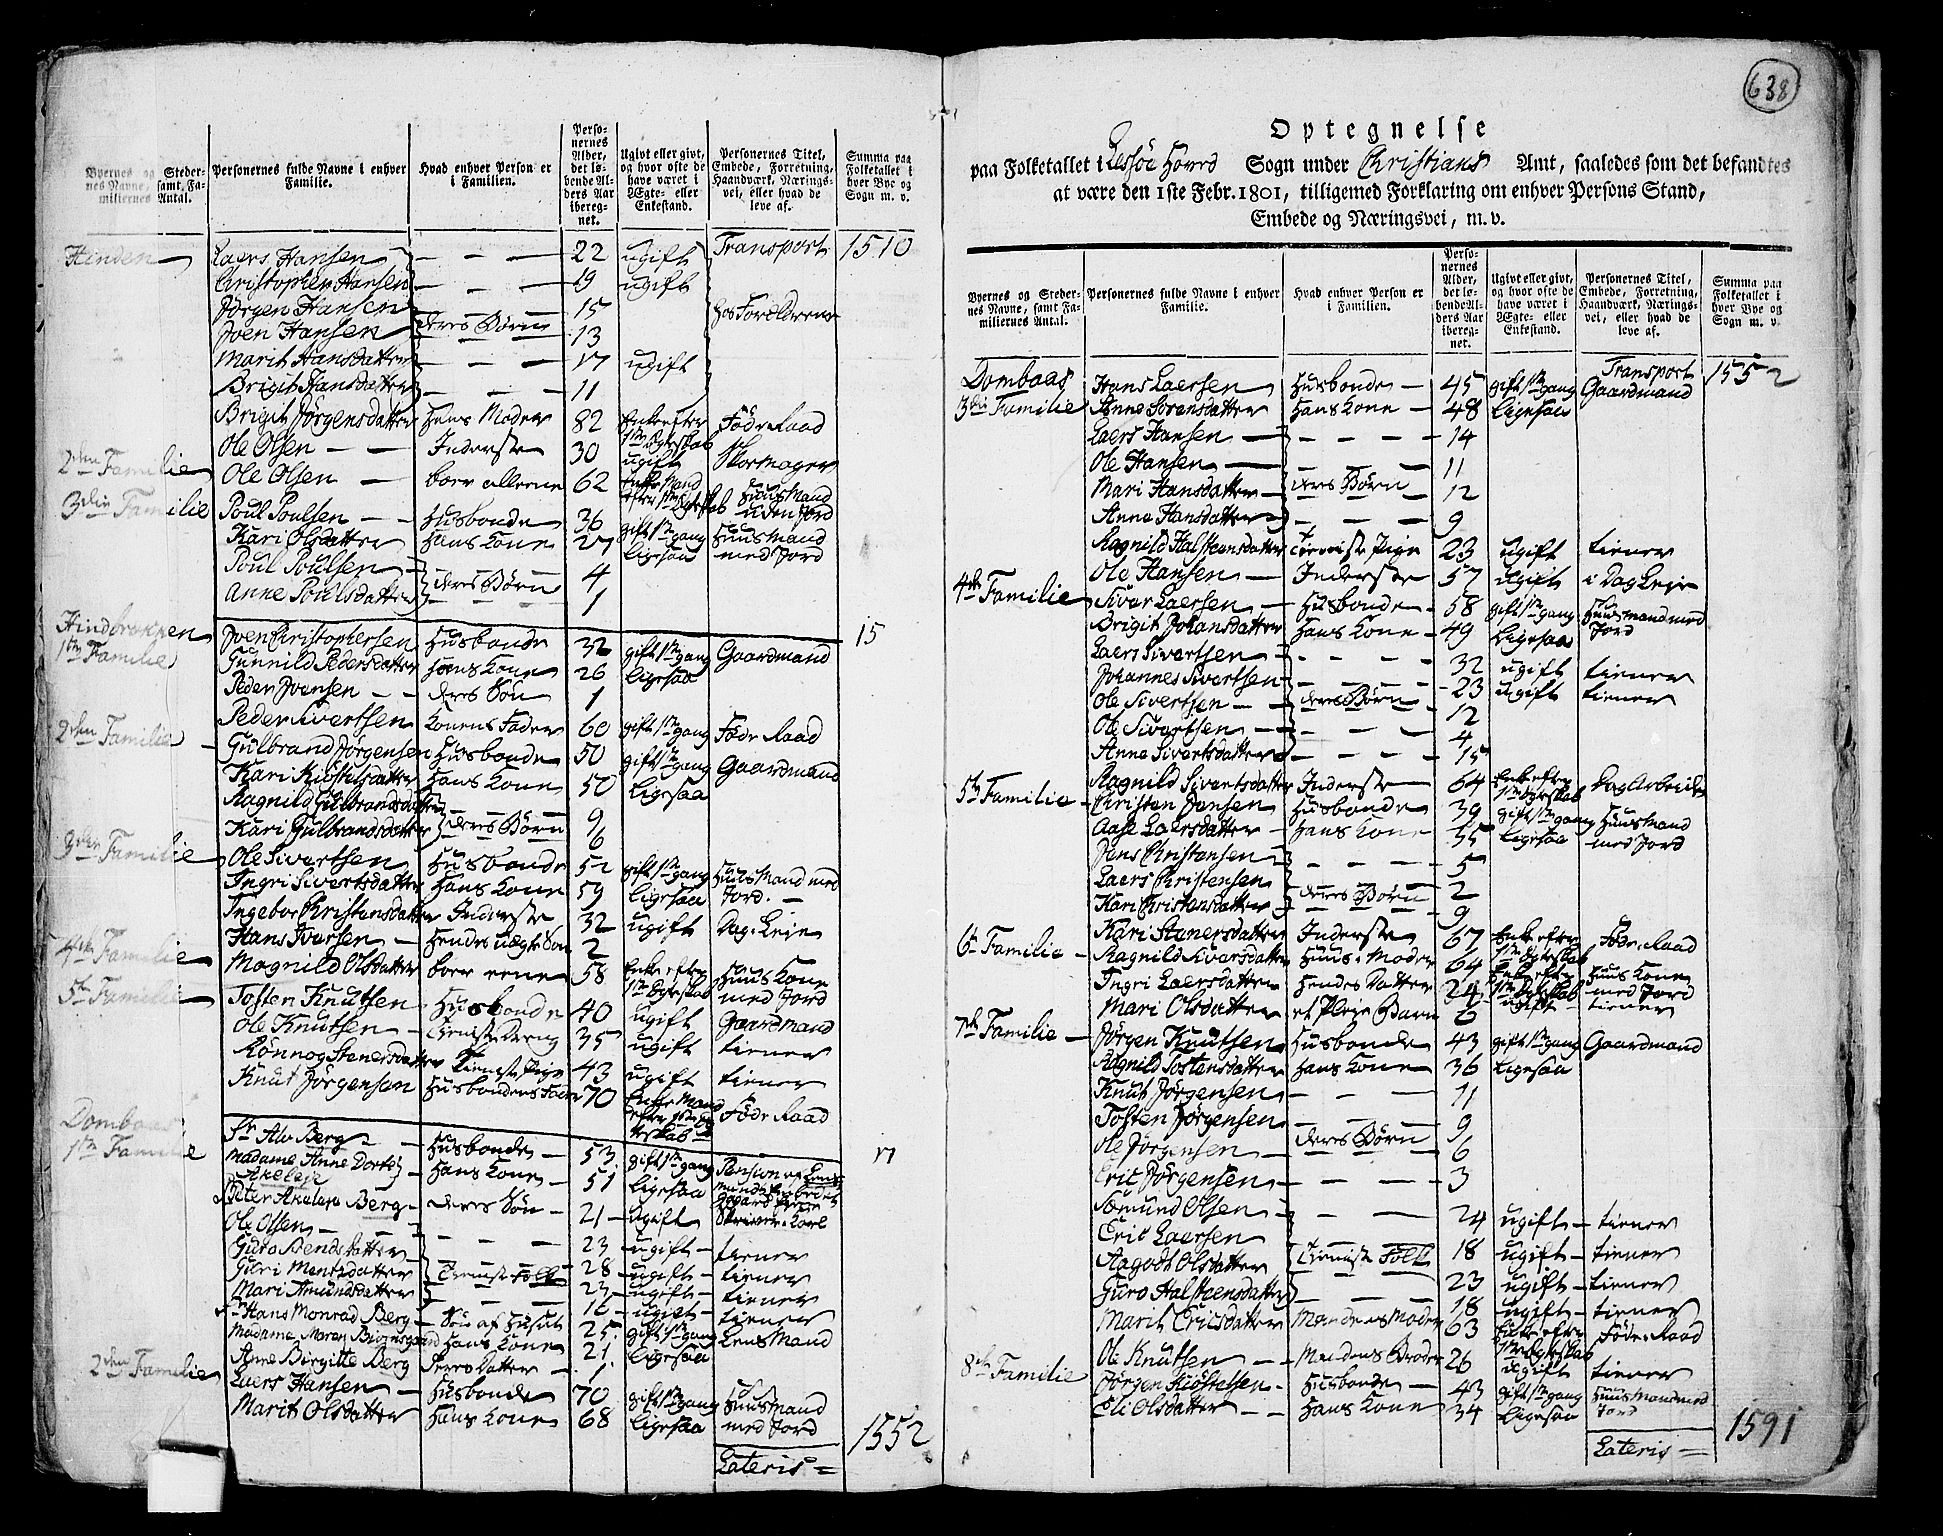 638
Byernes og Steder-
nes Navne, samt Fa-
miliernes Antal.
Personernes fulde Navne i enhver
Familie.
Hvad enhver Person er
i Familien.
Perso-
nernes
Alder,
det lø-
bende Al-
ders Aar
ibereg-
net.
Ugivt eller givt,
og hvor ofte de
have været i
Ægte- eller
Enkestand.
Personernes Titel,
Embede, Forretning,
Haandværk, Nærings-
vei, eller hvad de
leve af.
Summa paa
Folketallet i
hver Bye og
Sogn m. v.
Hinden Laers Hansen 22 ugift Transport 1510
Christopher Hansen 19 ugift
Jørgen Hansen 15 hos Foreldrene
Iven Hansen deres Børn 13
Marit Hansdatter 17 ugift
Brigit Hansdatter 11
Brigit Jørgensdatter Hans Moder 82 Enke efter 1ste Egteskab Føde Raad
Ole Olsen Inderste 30 ugift Skomager
2den Familie Ole Olsen boer alleene 62 Enke Mand efter 1ste Egteskab Huus Mand uden Jord
3die Familie Poul Poulsen Husbonde 36 gift 1ste gang Huus Mand
Kari Olsdatter Hans Kone 27 Ligesaa med Jord
Poul Poulsen 4
Anne Poulsdatter deres Børn 1
Hindbrækken Iven Christophersen Husbonde 32 gift 1ste gang Gaardmand 15
1ste Familie Gunnild Pedersdatter Hans Kone 26 Ligesaa
Peder Ivensen deres Søn 1
Peder Sivertsen Konens Fader 60 gift 1ste gang Føde Raad
2den Familie Gulbrand Jørgensen Husbonde 50 gift 1ste gang Gaardmand
Kari Kiøstelsdatter Hans Kone 50 Ligesaa
Ragnild Gulbrandsdatter 9
Kari Gulbrandsdatter deres Børn 6
3die Familie Ole Sivertsen Husbonde 52 gift 1ste gang Huus Mand med
Ingri Sivertsdatter Hans Kone 59 Ligesaa Jord.
Ingebor Christensdatter Inderste 32 ugift Dag Leje
Hans Iversen Hendes uægte Søn 2
4de Familie Magnild Olsdatter boer eene 58 Enke efter 1ste Egteskab Huus Kone med Jord
5te Familie Tosten Knutsen Husbonde 40 ugift Gaardmand
Ole Knutsen Tieniste Dreng 35 ugift tiener
Rønnog Stenersdatter Tieniste Pige 43 ugift tiener
Knut Jørgensen Husbondens Fader 70 Enke Mand efter 1ste Egteskab Føde Raad
Dombaas Hr Alv Berg Husbonde 53 gift 1ste gang 17
1ste Familie Madame Anne Dorte Akeleje Hans Kone 51 Ligesaa
Peter Akeleje Berg deres Søn 21 ugift Skriver Karl
Ole Olsen 23 ugift tiener
Guro Bendsdatter 28 ugift tiener
Guri Mentsdatter Tieniste Folk 23 ugift tiener
Mari Amundsdatter 16 ugift tiener
Hr Hans Monrad Berg Søn af Huset 25 gift 1ste gang Lens Mand
Madame Maren Hans Kone 21 Ligesaa
Anne Birgitte Berg deres Datter 1
2den Familie Laers Hansen Husbonde 70 gift 1ste gang Huus Mand
Marit Olsdatter Hans Kone 68 Ligesaa med Jord 1552
Lateris
Optegnelse
paa Folketallet i Lessøe Hoved Sogn under Christians Amt, saaledes som det befandtes
at være den 1ste Febr. 1801, tilligemed Forklaring om enhver Persons Stand,
Embede og Næringsvei, m. v.
Byernes og Steder-
nes Navne, samt Fa-
miliernes Antal.
Personernes fulde Navne i enhver
Familie.
Hvad enhver Person er
i Familien.
Perso-
nernes
Alder,
det lø-
bende Al-
ders Aar
ibereg-
net.
Ugivt eller givt,
og hvor ofte de
have været i
Ægte- eller
Enkestand.
Personernes Titel,
Embede, Forretning,
Haandværk, Nærings-
vei, eller hvad de
leve af.
Summa paa
Folketallet i
hver Bye og
Sogn m. v.
Transport 1552
Dombaas Hans Laersen Husbonde 45 gift 1ste gang Gaardmand
3die Familie Anne Sorensdatter Hans Kone 48 Ligesaa
Laers Hansen 14
Ole Hansen 11
Mari Hansdatter deres Børn 12
Anne Hansdatter 9
Ragnild Halsteensdatter Tieniste Pige 23 ugift tiener
Ole Hansen Inderste 57 ugift i Dag Leje
4de Familie Sivar Laersen Husbonde 58 gift 1ste gang Huusmand med
Brigit Johansdatter Hans Kone 49 Ligesaa Jord
Laers Sivertsen 32 ugift tiener
Johannes Sivertsen 23 ugift tiener
Ole Sivertsen deres Børn 12
Ole Sivertsen 4
Anne Sivertsdatter 15
Ragnild Sivertsdatter Inderste 64 Enke efter 1ste Egteskab Dag Arbeide
5te Familie Christen Jensen Husbonde 39 gift 1ste gang Huus Mand
Aase Laersdatter Hans Kone 35 Ligesaa med Jord
Jens Christensen 5
Laers Christensen 2
Kari Christensdatter deres Børn 9
Kari Stenersdatter Inderste 67 Enke efter 1ste Egteskab Føde Raad
6te Familie Ragnild Sivarsdatter Huus Moder 64 Enke efter 1ste Egteskab Huus Kone med Jord
Ingri Laersdatter Hendes Datter 24 ugift tiener
Mari Olsdatter et Pleje Barn 6
7de Familie Jørgen Knutsen Husbonde 43 gift 1ste gang Gaardmand
Ragnild Tostensdatter Hans Kone 36 Ligesaa
Knut Jørgensen 11
Tosten Jørgensen 9
Ole Jørgensen deres Børn 6
Eric Jørgensen 3
Somund Olsen 24 ugift tiener
Eric Laersen 18 ugift tiener
Aagodt Olsdatter Tieniste Folk 23 ugift tiener
Guro Halsteensdatter 18 ugift tiener
Marit Ericsdatter Mandens Moder 63 Enke efter 1ste Egteskab Føde Raad
Ole Knutsen Mandens Broder 26 ugift tiener
8de Familie Jørgen Kiøstelsen Husbonde 43 gift 1ste gang Huus Mand med
Eli Olsdatter Hans Kone 34 Ligesaa Jord 1591
Lateris